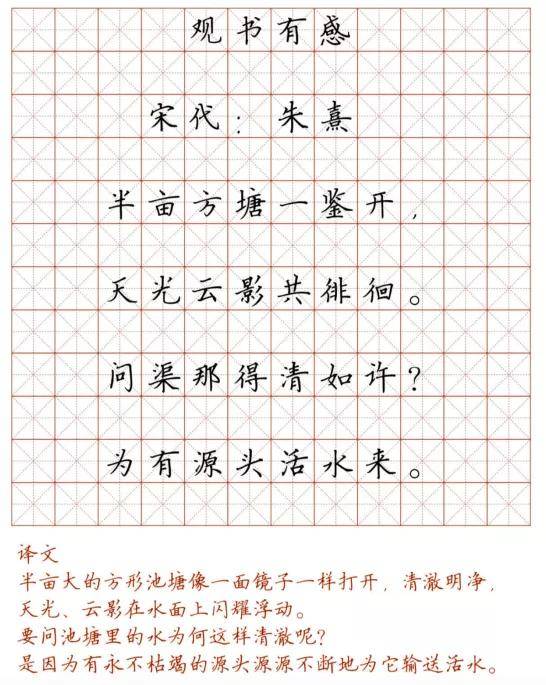 观书有感
宋代：朱熹
半亩方塘一鉴开，
天光云影共徘徊。
问渠那得清如许？
为有源头活水来。
译文
半亩大的方形池塘像一面镜子一样打开，清澈明净，
天光、云影在水面上闪耀浮动。
要问池塘里的水为何这样清澈呢？
是因为有永不枯竭的源头源源不断地为它输送活水。